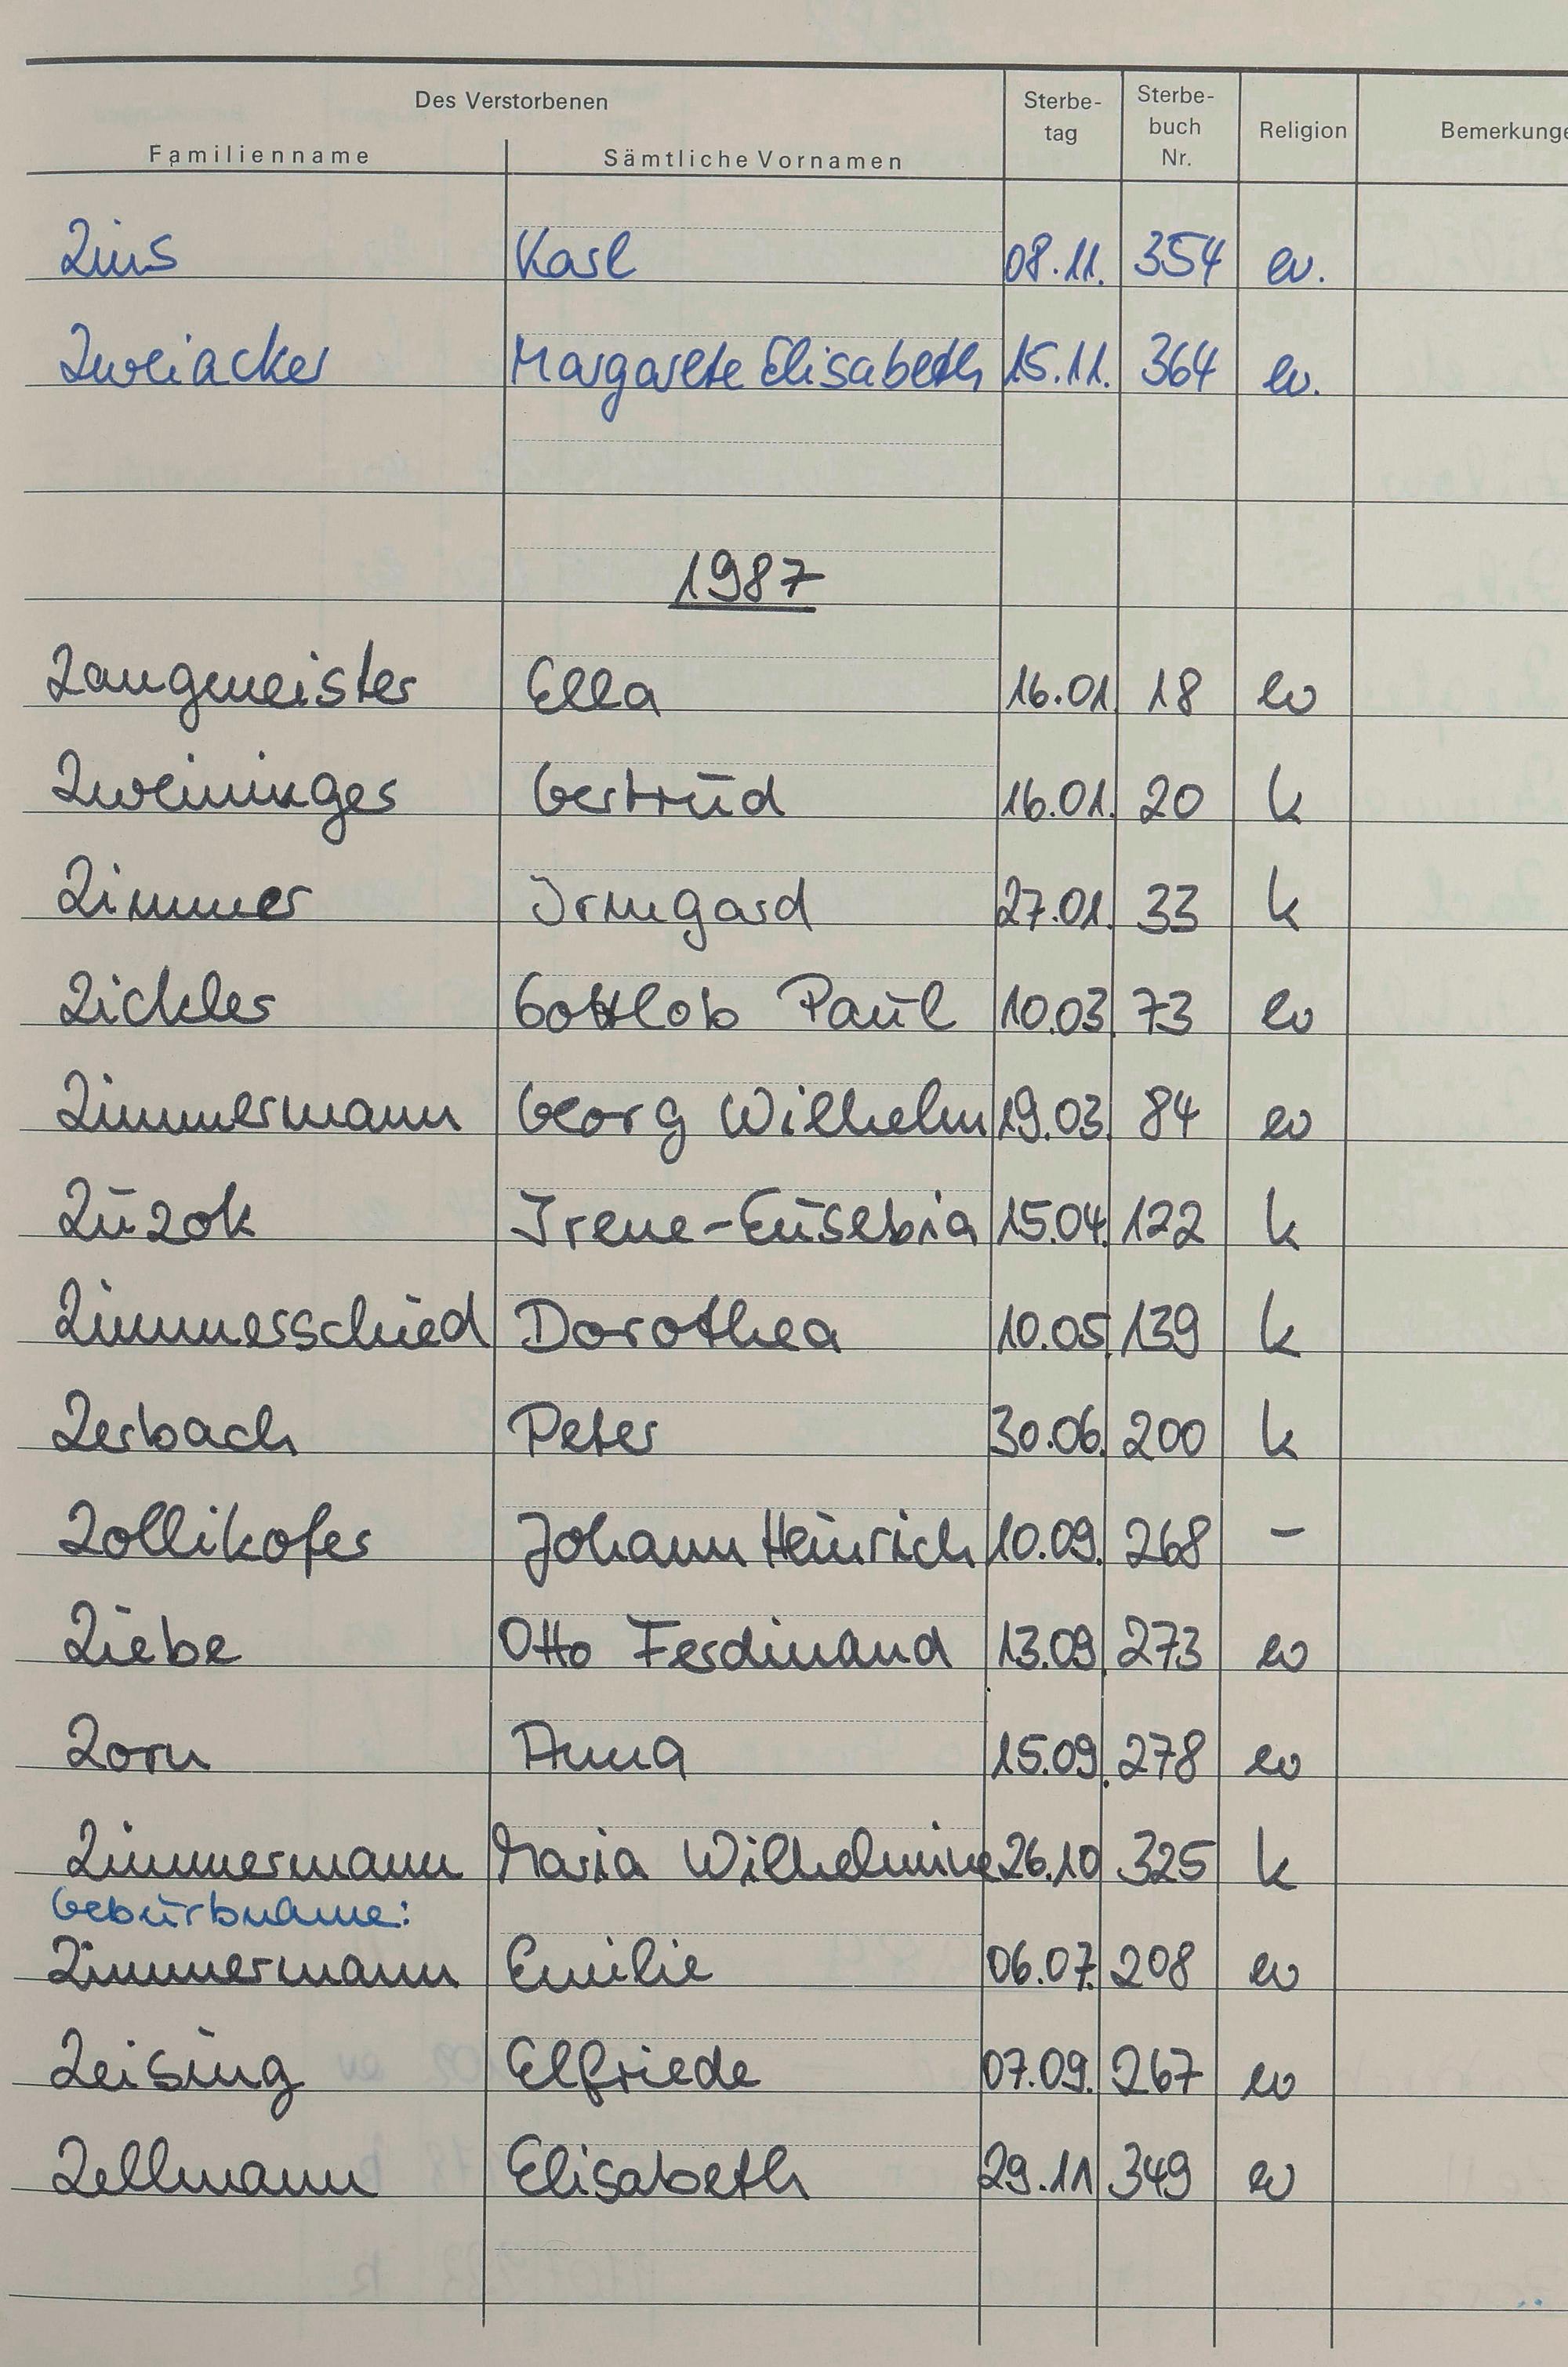 Des Verstorbenen
Familienname Sämtliche Vornamen Sterbe-tag Sterbe-buch Nr. Religion Bemerkunge
Zins Karl 08.11. 354 ev.
Zweiacker Margarete Elisabeth 15.11. 364 ev.
1987
Zangmeister Ella 16.01 18 ev
Zweininger Gertrud 16.01. 20 k
Zimmer Irmgard 27.01. 33 k
Zickler Gottlob Paul 10.03. 73 ev
Zimmermann Georg Wilhelm 19.03. 84 ev
Zuzok Irene-Eusebia 15.04. 122 k
Zimmerschied Dorothea 10.05. 139 k
Zerbach Peter 30.06. 200 k
Zollikofer Johann Heinrich 10.09. 268 –
Ziebe Otto Ferdinand 13.09. 273 ev
Zorn Anna 15.09. 278 ev
Zimmermann Maria Wilhelmine 26.10 325 k
Geburtsname:
Zimmermann Emilie 06.07. 208 ev
Zeising Elfriede 07.09. 267 ev
Zellmann Elisabeth 29.11 349 ev